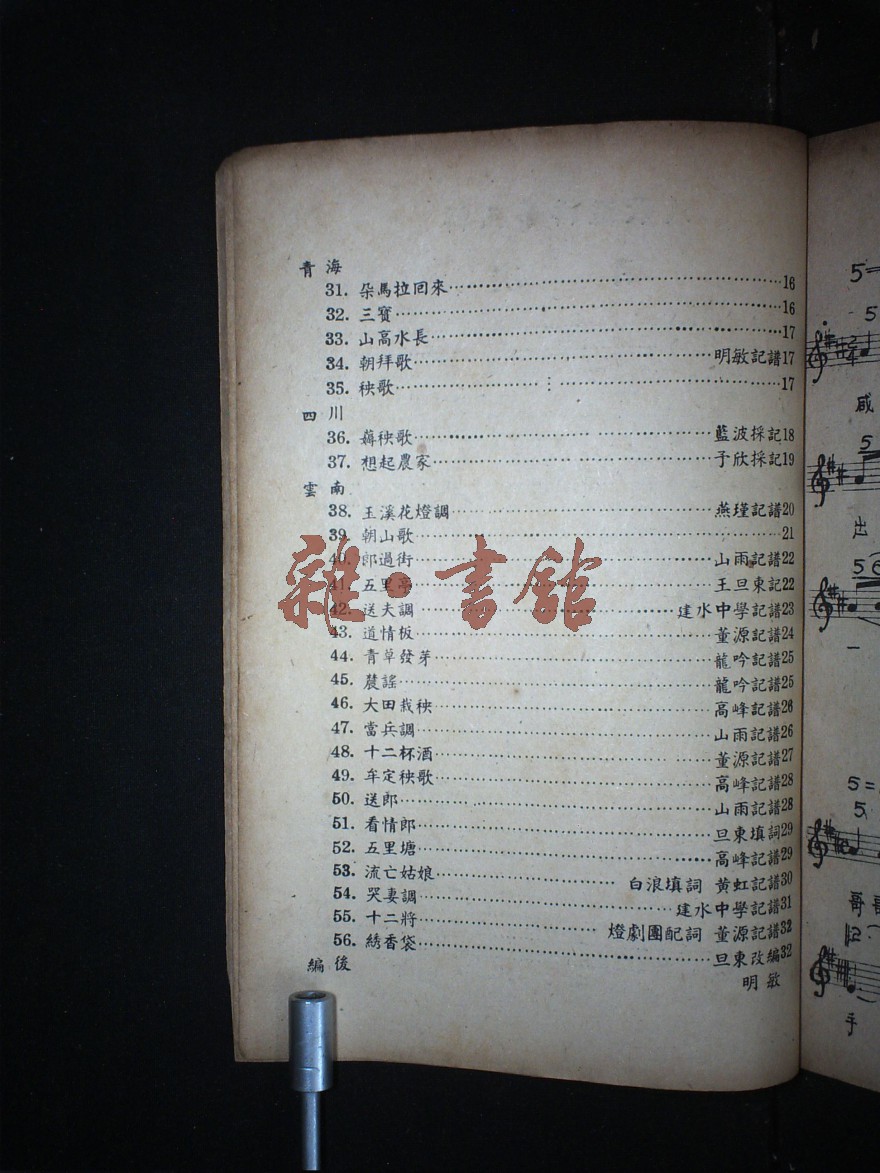 青海
31. 朶馬拉回來 16
32. 三寶 16
33. 山高水長 17
34. 朝拜歌 明敏記譜17
35. 秧歌 17
四川
36. 薅秧歌 藍波採記18
37. 想起農家 子欣採記19
雲南
38. 玉溪花燈調 燕瑾記譜20
39. 朝山歌 21
40. 郎過街 山雨記譜22
41. 五里亭 王旦東記22
42. 送夫調 建水中學記譜23
43. 道情板 董源記譜24
44. 青草發芽 龍吟記譜25
45. 農謠 龍吟記譜25
46. 大田栽秧 高峰記譜26
47. 當兵調 山雨記譜26
48. 十二杯酒 董源記譜27
49. 牟定秧歌 高峰記譜28
50. 送郎 山雨記譜28
51. 看情郎 旦東填詞29
52. 五里塘 高峰記譜29
53. 流亡姑娘 白浪填詞 黄虹記譜30
54. 哭妻調 建水中學記譜31
55. 十二將 燈劇團配詞 董源記譜32
56. 綉香袋 旦東改編32
編後 明敏
雜·書館
5=
5
2/4
咸
5
出
5
一
5=
5
哥
手